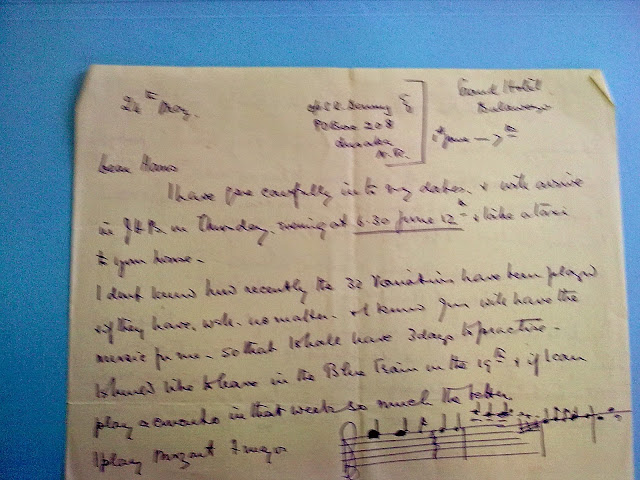 24th May.
c/o C.R. Denny
PO Box 208
Lusaka
N.R.
Grand Hotel
Bulawayo
June → 7th
Dear Hans
I have gone carefully into my dates. & will arrive
in JHB on Thursday, evening at 6.30 June 12th & take a taxi
to your home.
I don't know how recently the 32 Variations have been played
& if they have, well - no matter. & I know you will have the
music for me - so that I shall have 3 days to practise.
I should like to leave in the Blue Train on the 19th & if I can
play a concerto in that week so much the better
I play Mozart F major